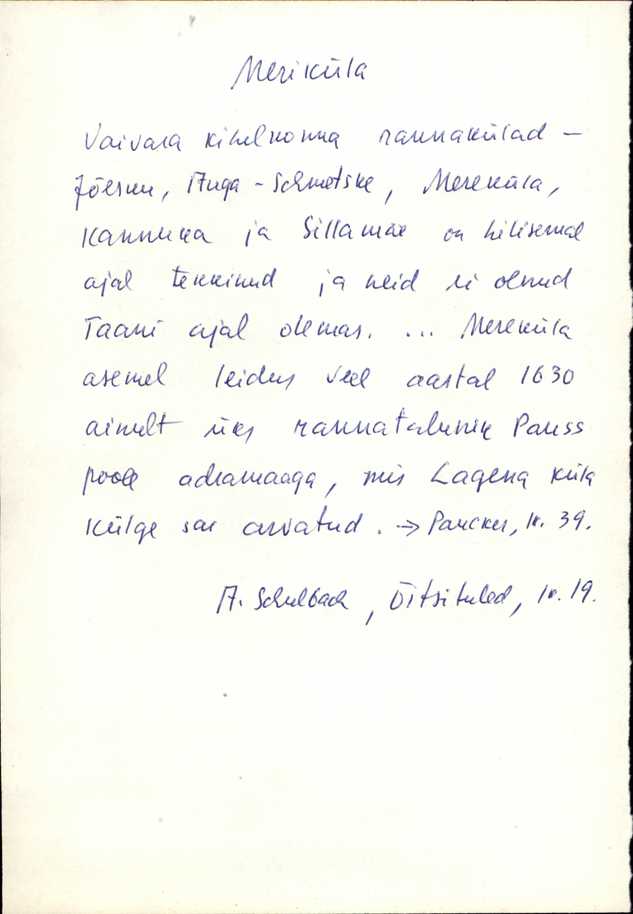 Meriküla
Vaivara kihelkonna rannakülad –
Jõesuu, Auga-Schmetske, Mereküla,
Kannuka ja Sillamäe on hilisemal
ajal tekkinud ja neid ei olnud
Taani ajal olemas. ... Mereküla
asemel leidus veel aastal 1630
ainult üks rannatalunik Pauss
poole adramaaga, mis Lagena küla
külge sai arvatud. → Paucker, lk. 39.
A. Schulbach, Öitsituled, lk. 19.